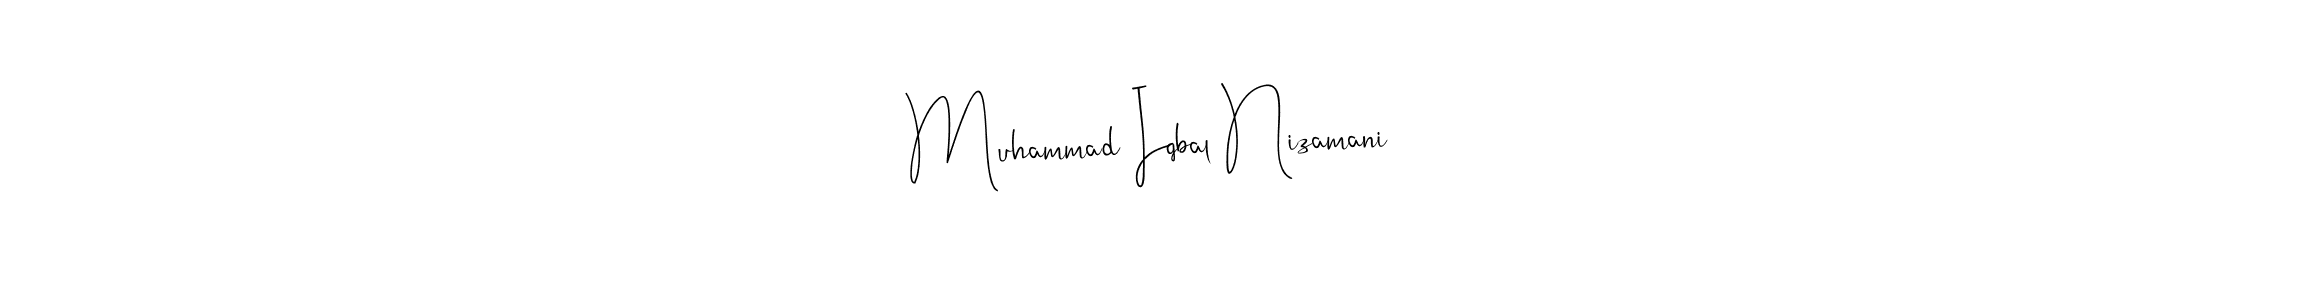 Muhammad Iqbal Nizamani